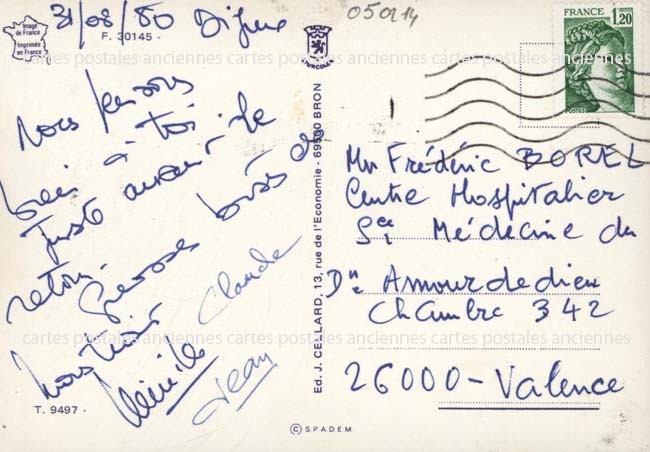 Image
de France
Imprimée
en France
31/08/80
F. 30145 -
Nous pensons
bien à toi
juste avant le
retour.
Grosses bises de
nous trois
Mireille Claude
Jean
T. 9497 -
Ed. J. CELLARD, 13, rue de l'Economie - 69500 BRON
© SPADEM
050214
FRANCE
1,20
POSTES
Mr Frédéric BOREL
Centre Hospitalier
Sce Médecine du
Dr Amourdedieu
Chambre 342
26000 - Valence
cartes postales anciennes cartes postales anciennes cartes postales anciennes
cartes postales anciennes cartes postales anciennes cartes postales anciennes